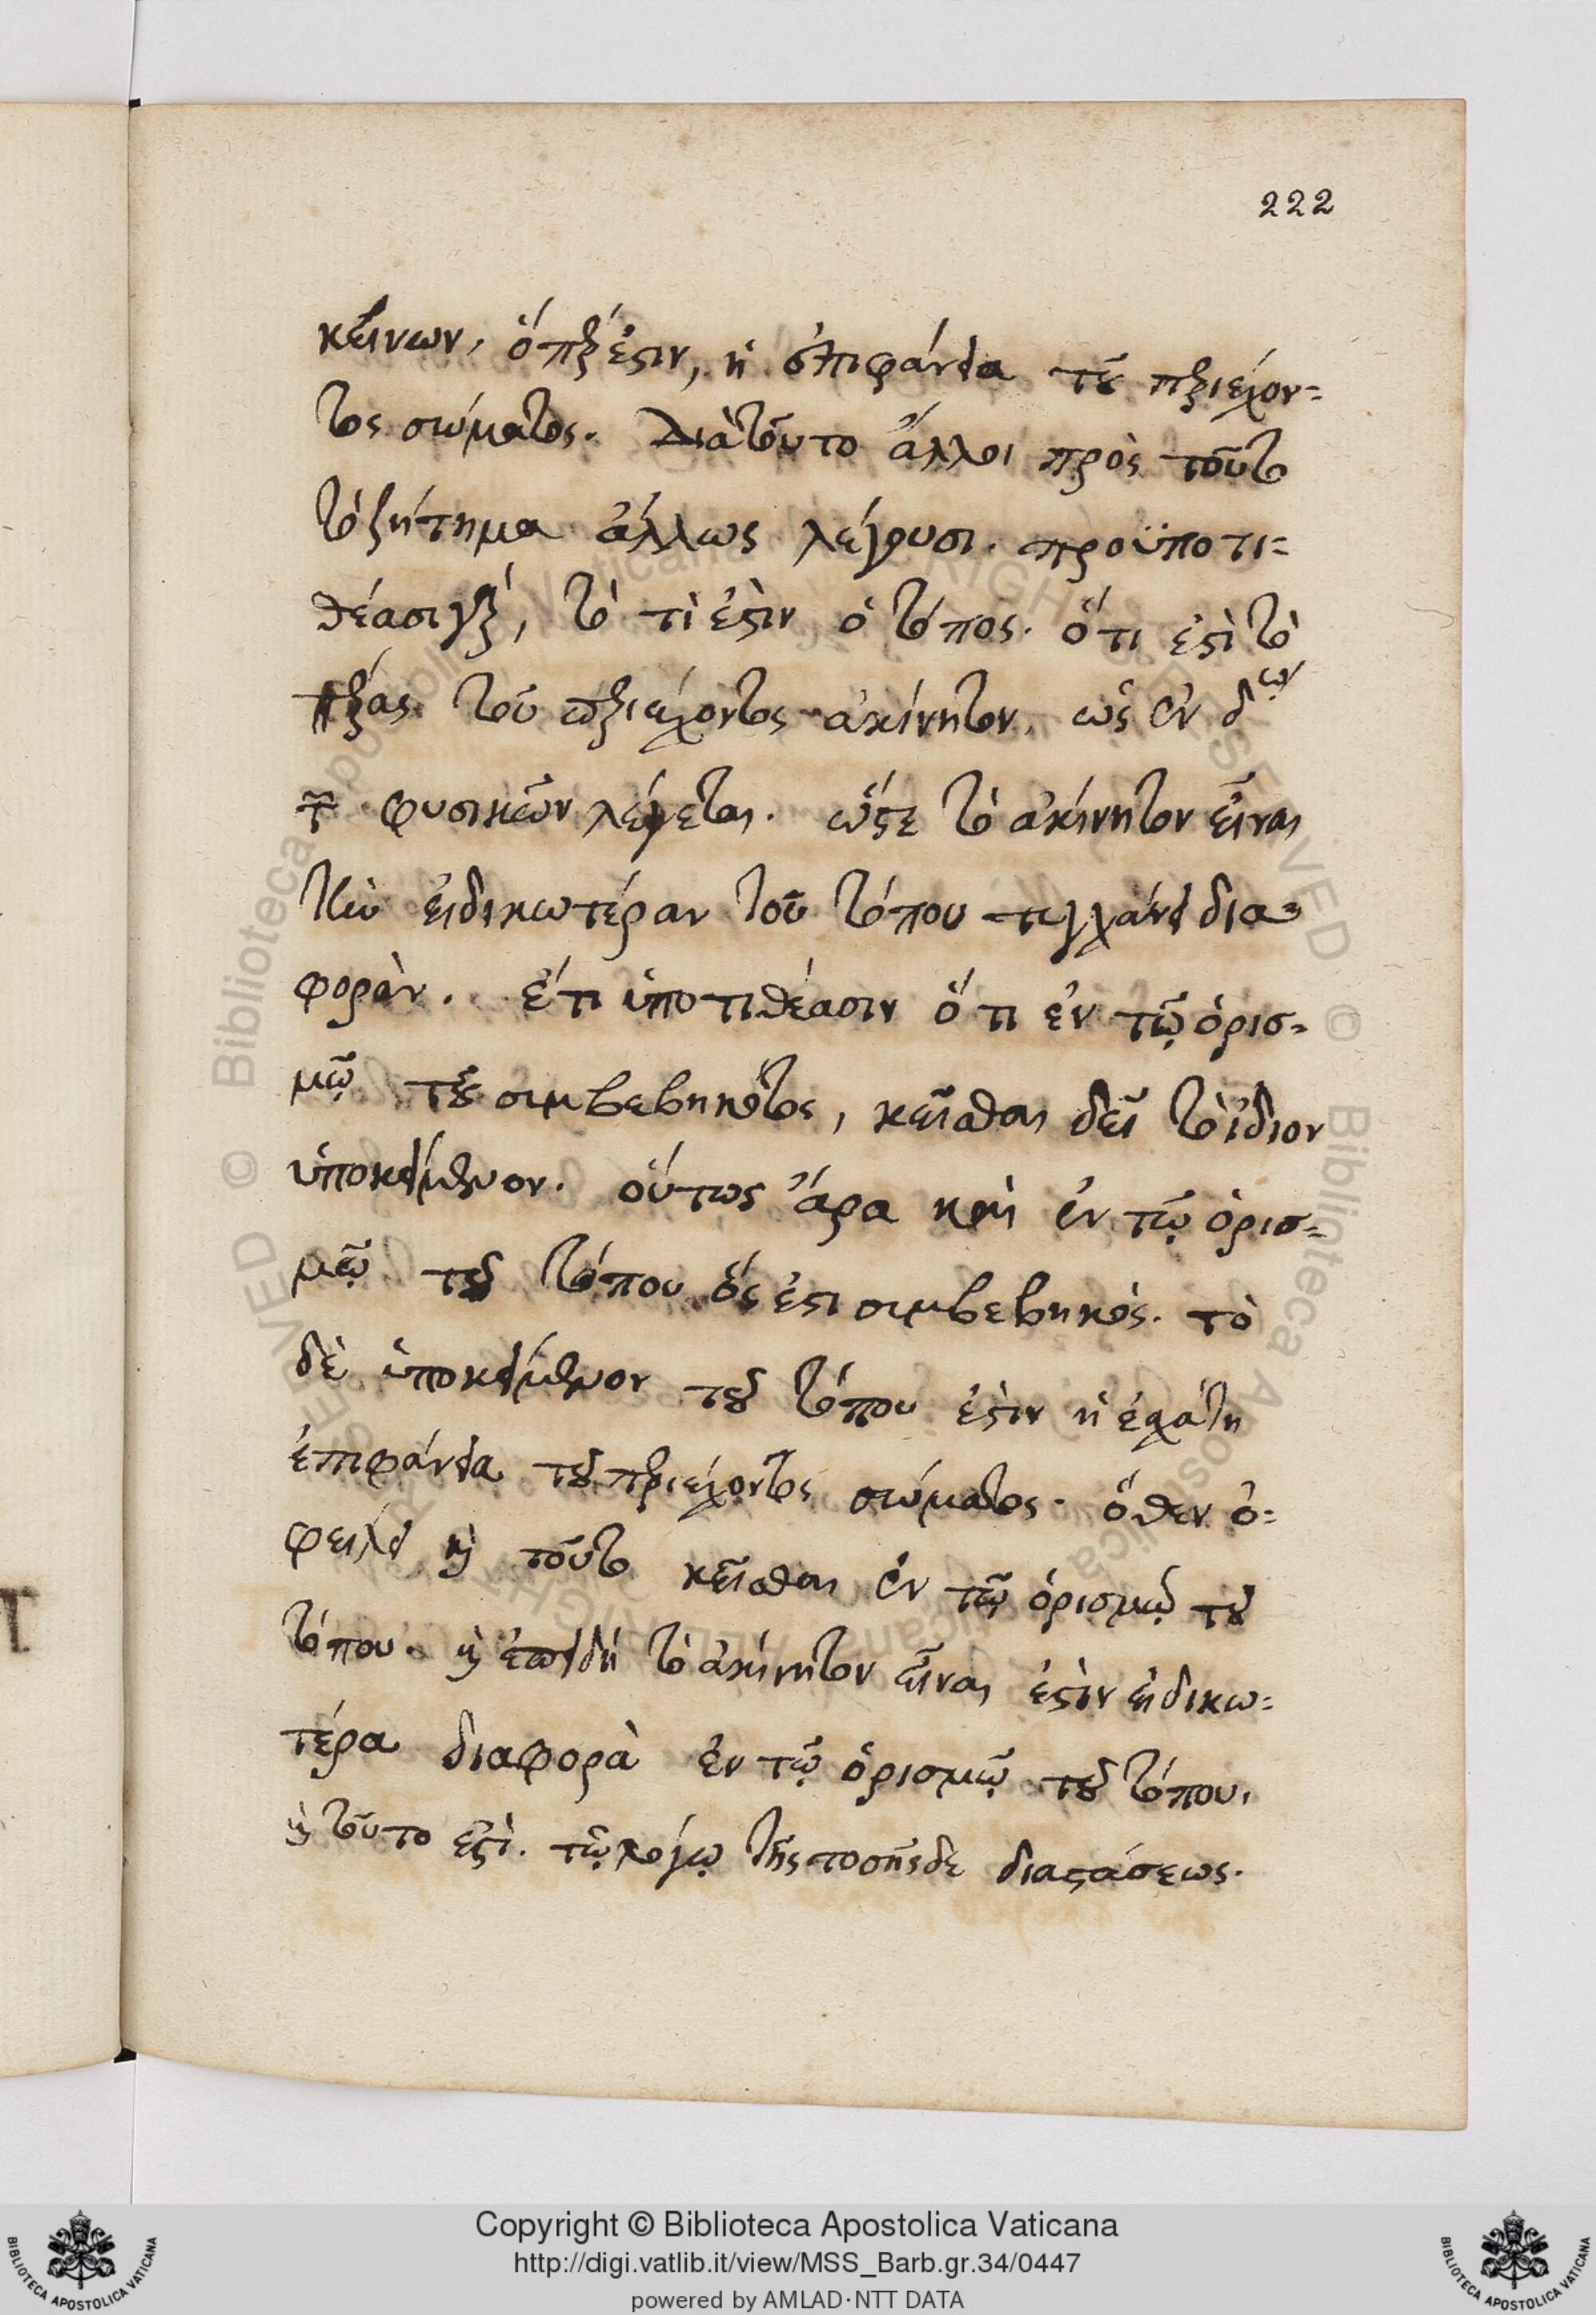 222
κείνων, ὅπερ ἐστὶν, ἡ ἐπιφάνεια τοῦ περιέχον=
τος σώματος. Διὰ τοῦτο ἄλλοι πρὸς τοῦτο
τὸ ζήτημα ἄλλως λέγουσι. προϋποτι=
θέασι γὰρ, τὸ τί ἐστιν ὁ τόπος. ὅτι ἐστὶ τὸ
πέρας τοῦ περιέχοντος ἀκίνητον, ὡς ἐν δῳ
τῶν φυσικῶν λέγεται. ὥστε τὸ ἀκίνητον εἶναι
τὴν εἰδικωτέραν τοῦ τόπου τυγχάνει δια=
φορὰν. ἔτι ὑποτιθέασιν ὅτι ἐν τῷ ὁρισ=
μῷ τοῦ συμβεβηκότος, κεῖσθαι δεῖ τὸ ἴδιον
ὑποκείμενον. οὕτως ἄρα καὶ ἐν τῷ ὁρισ=
μῷ τοῦ τόπου ὅς ἐστι συμβεβηκός. τὸ
δὲ ὑποκείμενον τοῦ τόπου ἐστὶν ἡ ἐσχάτη
ἐπιφάνεια τοῦ περιέχοντος σώματος. ὅθεν ὀ=
φείλει καὶ τοῦτο κεῖσθαι ἐν τῷ ὁρισμῷ τοῦ
τόπου. καὶ ἐπειδὴ τὸ ἀκίνητον εἶναι ἐστὶν εἰδικω=
τέρα διαφορὰ ἐν τῷ ὁρισμῷ τοῦ τόπου,
καὶ τοῦτο ἐστὶ. τῷ λόγῳ τῆς τοσῆσδε διαστάσεως.
Copyright © Biblioteca Apostolica Vaticana
http://digi.vatlib.it/view/MSS_Barb.gr.34/0447
powered by AMLAD·NTT DATA